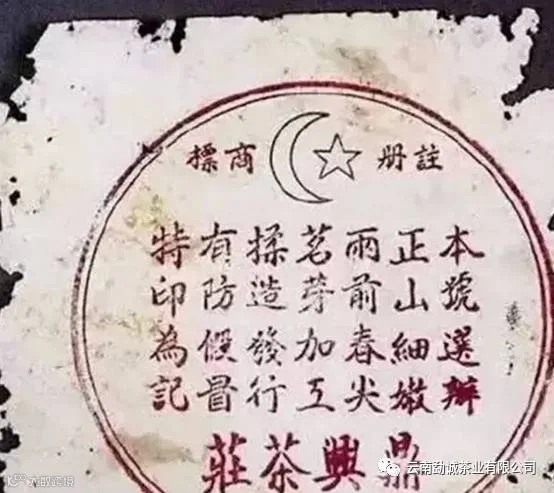 註册
商標
本號選辦
正山細嫩
雨前春尖
茗芽加工
揉造發行
有防假冒
特印為記
鼎興茶莊
云南勐诚茶业有限公司